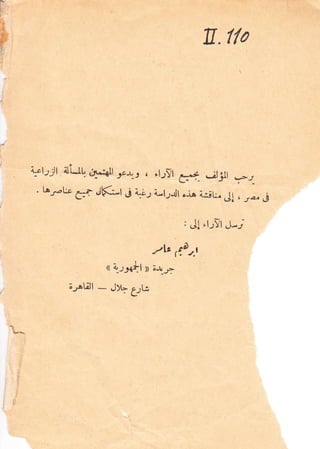 II.110
يرحب المؤلف بجميع الآراء ، ويدعو المهتمين بالمسألة الزراعية
فى مصر ، إلى مناقشة هذه الدراسة رغبة فى استكمال جميع عناصرها .
ترسل الآراء إلى :
ابرهيم عامر
جريدة « الجمهورية »
شارع جلال — القاهرة